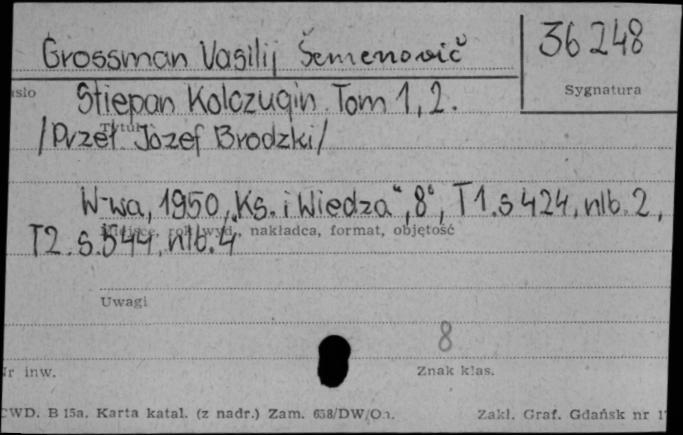 Grossman Vasilij Šemenovič
36 248
Sygnatura
Stiepan Kolczugin. Tom 1, 2.
Tytuł
/Przeł. Józef Brodzki/
W-wa, 1950, „Ks. i Wiedza", 8°, T 1. s 424, nlb. 2,
T2. s. 544, nlb. 4
Miejsce, rok wyd., nakładca, format, objętość
Uwagi
8
Nr inw.
Znak klas.
CWD. B 15a. Karta katal. (z nadr.) Zam. 658/DW/On.
Zakł. Graf. Gdańsk nr 1